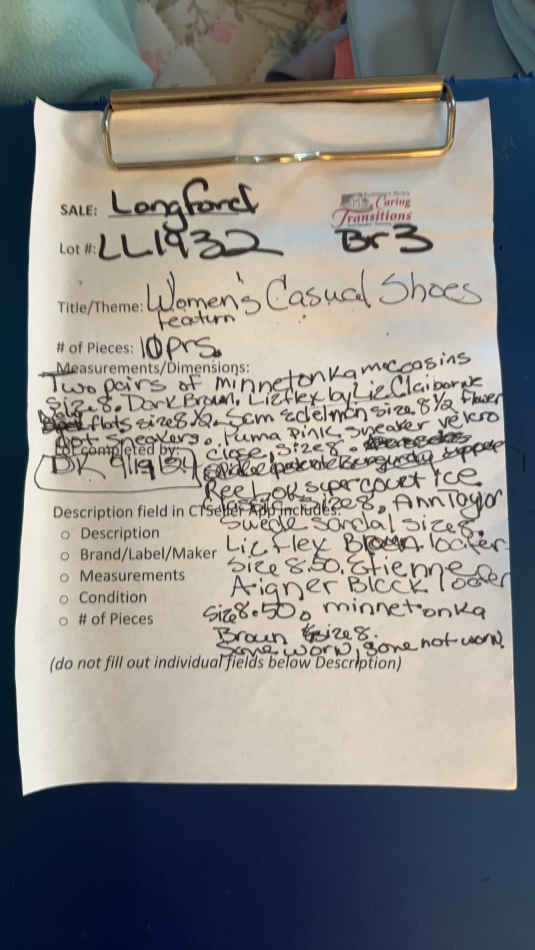 SALE: Longford
Caring
Transitions
Lot #: LL1932 Br3
Title/Theme: Women's Casual Shoes
featurn
# of Pieces: 10 prs.
Measurements/Dimensions:
Two pairs of minnetonka moccasins
size 8. Dark Brown, Lizflex by Liz Claiborne
flats size 8 1/2. Sam Edelman size 8 1/2 flower
dot sneakers. Puma pink sneaker velcro
Lot completed by: close, size 8.
DK 9/19/24 Burgundy
Reebok supercourt ice
size 8, Ann Taylor
Description field in CTSeller App includes:
Swede sandal size 8.
Description
Lizflex Brown loafer
Brand/Label/Maker
size 8.50. Etienne
Measurements
Aigner Black loafer
Condition
size 8.50. minnetonka
# of Pieces
Brown size 8.
Some worn, some not worn.
(do not fill out individual fields below Description)